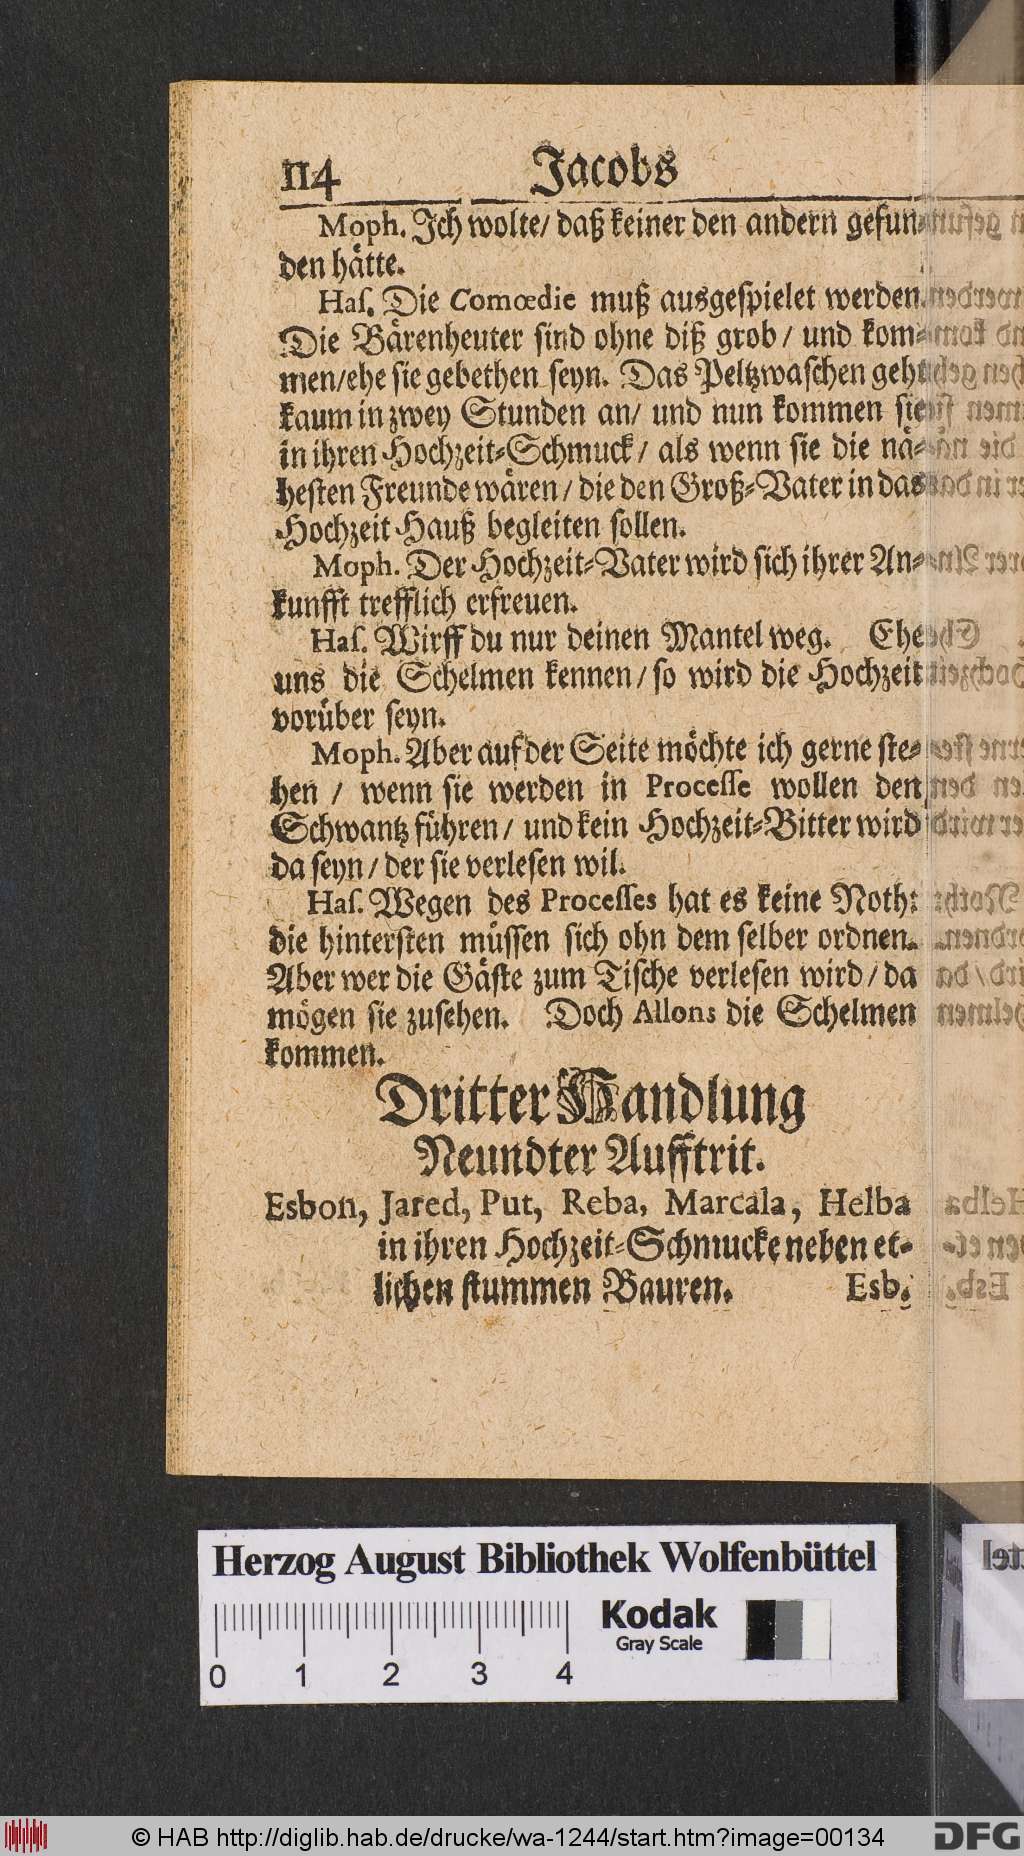 114 Jacobs
Moph. Ich wolte/ daß keiner den andern gefun-
den hätte.
Haſ. Die Comœdie muß ausgeſpielet werden.
Die Bärenheuter ſind ohne diß grob / und kom-
men/ehe ſie gebethen ſeyn. Das Peltzwaſchen geht
kaum in zwey Stunden an/ und nun kommen ſie
in ihren Hochzeit-Schmuck / als wenn ſie die nä-
heſten Freunde wären / die den Groß-Vater in das
Hochzeit Hauß begleiten ſollen.
Moph. Der Hochzeit-Vater wird ſich ihrer An-
kunfft trefflich erfreuen.
Haſ. Wirff du nur deinen Mantel weg. Ehe
uns die Schelmen kennen / ſo wird die Hochzeit
vorüber ſeyn.
Moph. Aber auf der Seite möchte ich gerne ſte-
hen / wenn ſie werden in Proceſſe wollen den
Schwantz führen / und kein Hochzeit-Bitter wird
da ſeyn / der ſie verleſen wil.
Haſ. Wegen des Proceſſes hat es keine Noth:
die hinterſten müſſen ſich ohn dem ſelber ordnen.
Aber wer die Gäſte zum Tiſche verleſen wird / da
mögen ſie zuſehen. Doch Allons die Schelmen
kommen.
Dritter Handlung
Neundter Aufftrit.
Esbon, Jared, Put, Reba, Marcala, Helba
in ihren Hochzeit-Schmucke neben et-
lichen ſtummen Bauren. Esb.
Herzog August Bibliothek Wolfenbüttel
0 1 2 3 4
Kodak
Gray Scale
© HAB http://diglib.hab.de/drucke/wa-1244/start.htm?image=00134
DFG